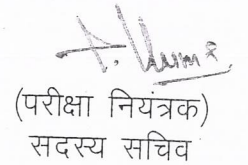 (परीक्षा नियंत्रक)
सदस्य सचिव